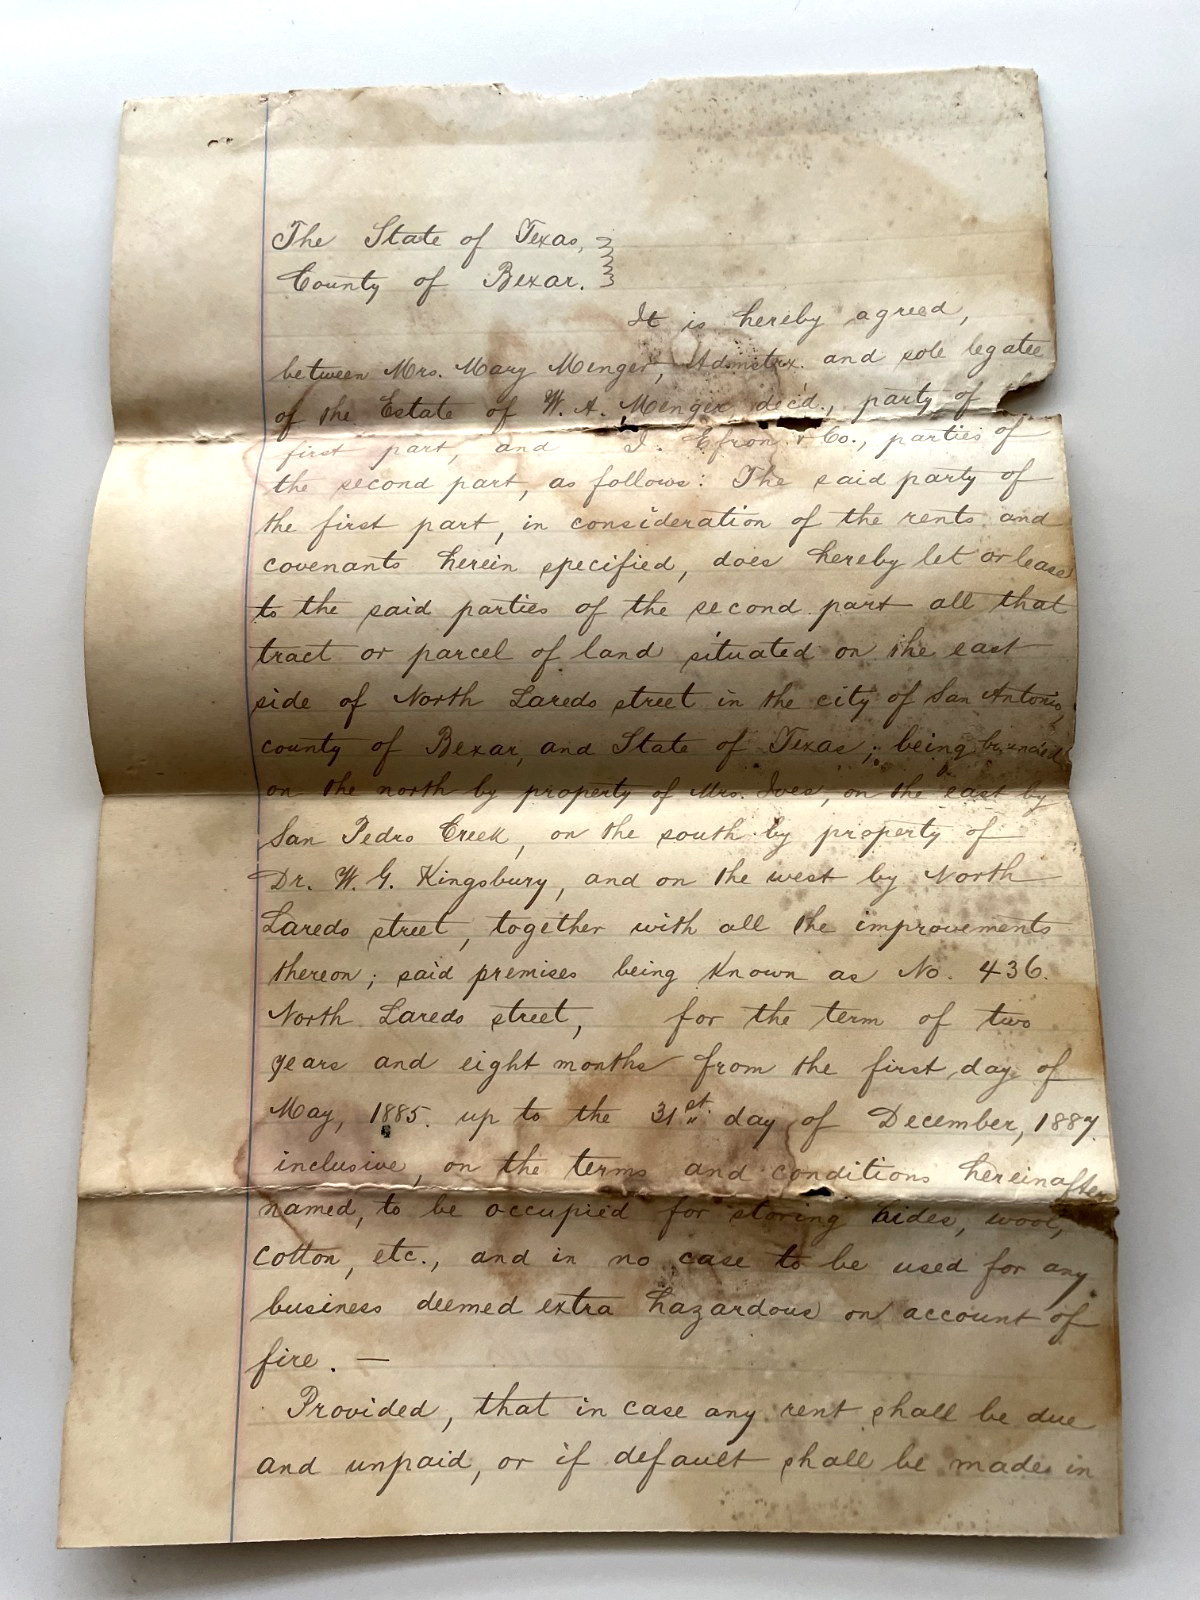 The State of Texas,
County of Bexar.
It is hereby agreed,
between Mrs. Mary Menger, Admstrx. and sole legatee
of the Estate of W. A. Menger, dec'd., party of the
first part, and I. Efron & Co., parties of
the second part, as follows: The said party of
the first part, in consideration of the rents and
covenants herein specified, does hereby let or lease
to the said parties of the second part all that
tract or parcel of land situated on the east
side of North Laredo street in the city of San Antonio,
county of Bexar, and State of Texas; being bounded
on the north by property of Mrs. Ives, on the east by
San Pedro Creek, on the south by property of
Dr. W. G. Kingsbury, and on the west by North
Laredo street, together with all the improvements
thereon; said premises being known as No. 436.
North Laredo street, for the term of two
years and eight months from the first day of
May, 1885. up to the 31st. day of December, 1887.
inclusive, on the terms and conditions hereinafter
named, to be occupied for storing hides, wool,
cotton, etc., and in no case to be used for any
business deemed extra hazardous on account of
fire. —
Provided, that in case any rent shall be due
and unpaid, or if default shall be made in